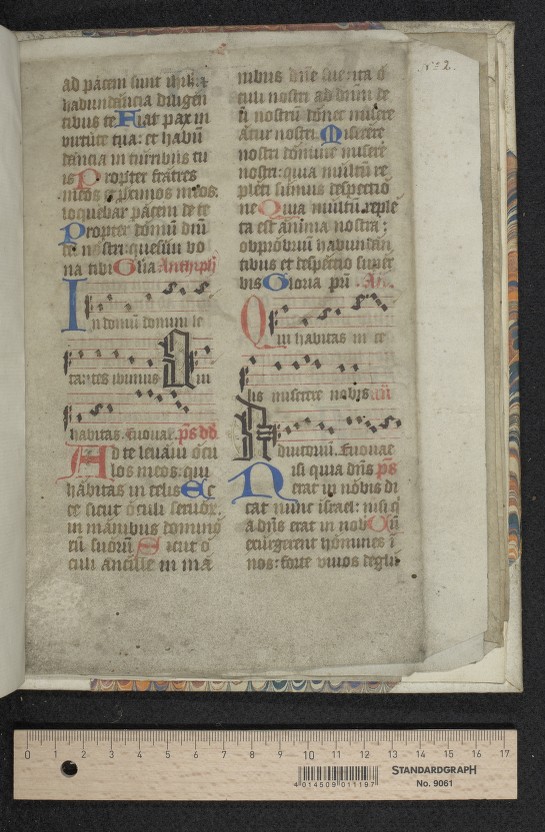 ad pacem sunt ihrl̄m
habundancia diligen
tibus te Fiat pax in
virtute tua: et habū
dancia in turribus tu
is Propter fratres
meos et proximos meos.
loquebar pacem de te
Propter domū dnī
dei nostri: quesiui bo
na tibi Glīa Antiph
In domū domini le
tantes ibimus Qui
habitas. Euouae. ps dd.
Ad te leuaui ocu
los meos. qui
habitas in celis Ec
ce sicut oculi seruoꝝ.
in manibus domino
rū suoꝝ Sicut o
culi ancille in ma
nibus dn̄e sue: ita o
culi nostri ad dnm̄ de
ū nostrū donec misere
atur nostri. Miserere
nostri domine misere
nostri: quia multū re
pleti sumus despectio
ne Quia multū reple
ta est anima nostra:
obprobriū habundan
tibus et despectio super
bis Gloria pri. An.
Qui habitas in ce
lis miserere nobis an
Adiutoriū. Euouae
Nisi quia dn̄s ps
erat in nobis di
cat nunc israel: nisi q
a dn̄s erat in nob Cū
exurgerent homines ī
nos: forte viuos deglu
N° 2.
0 1 2 3 4 5 6 7 8 9 10 11 12 13 14 15 16 17
4 014509 011197
STANDARDGRAPH
No. 9061